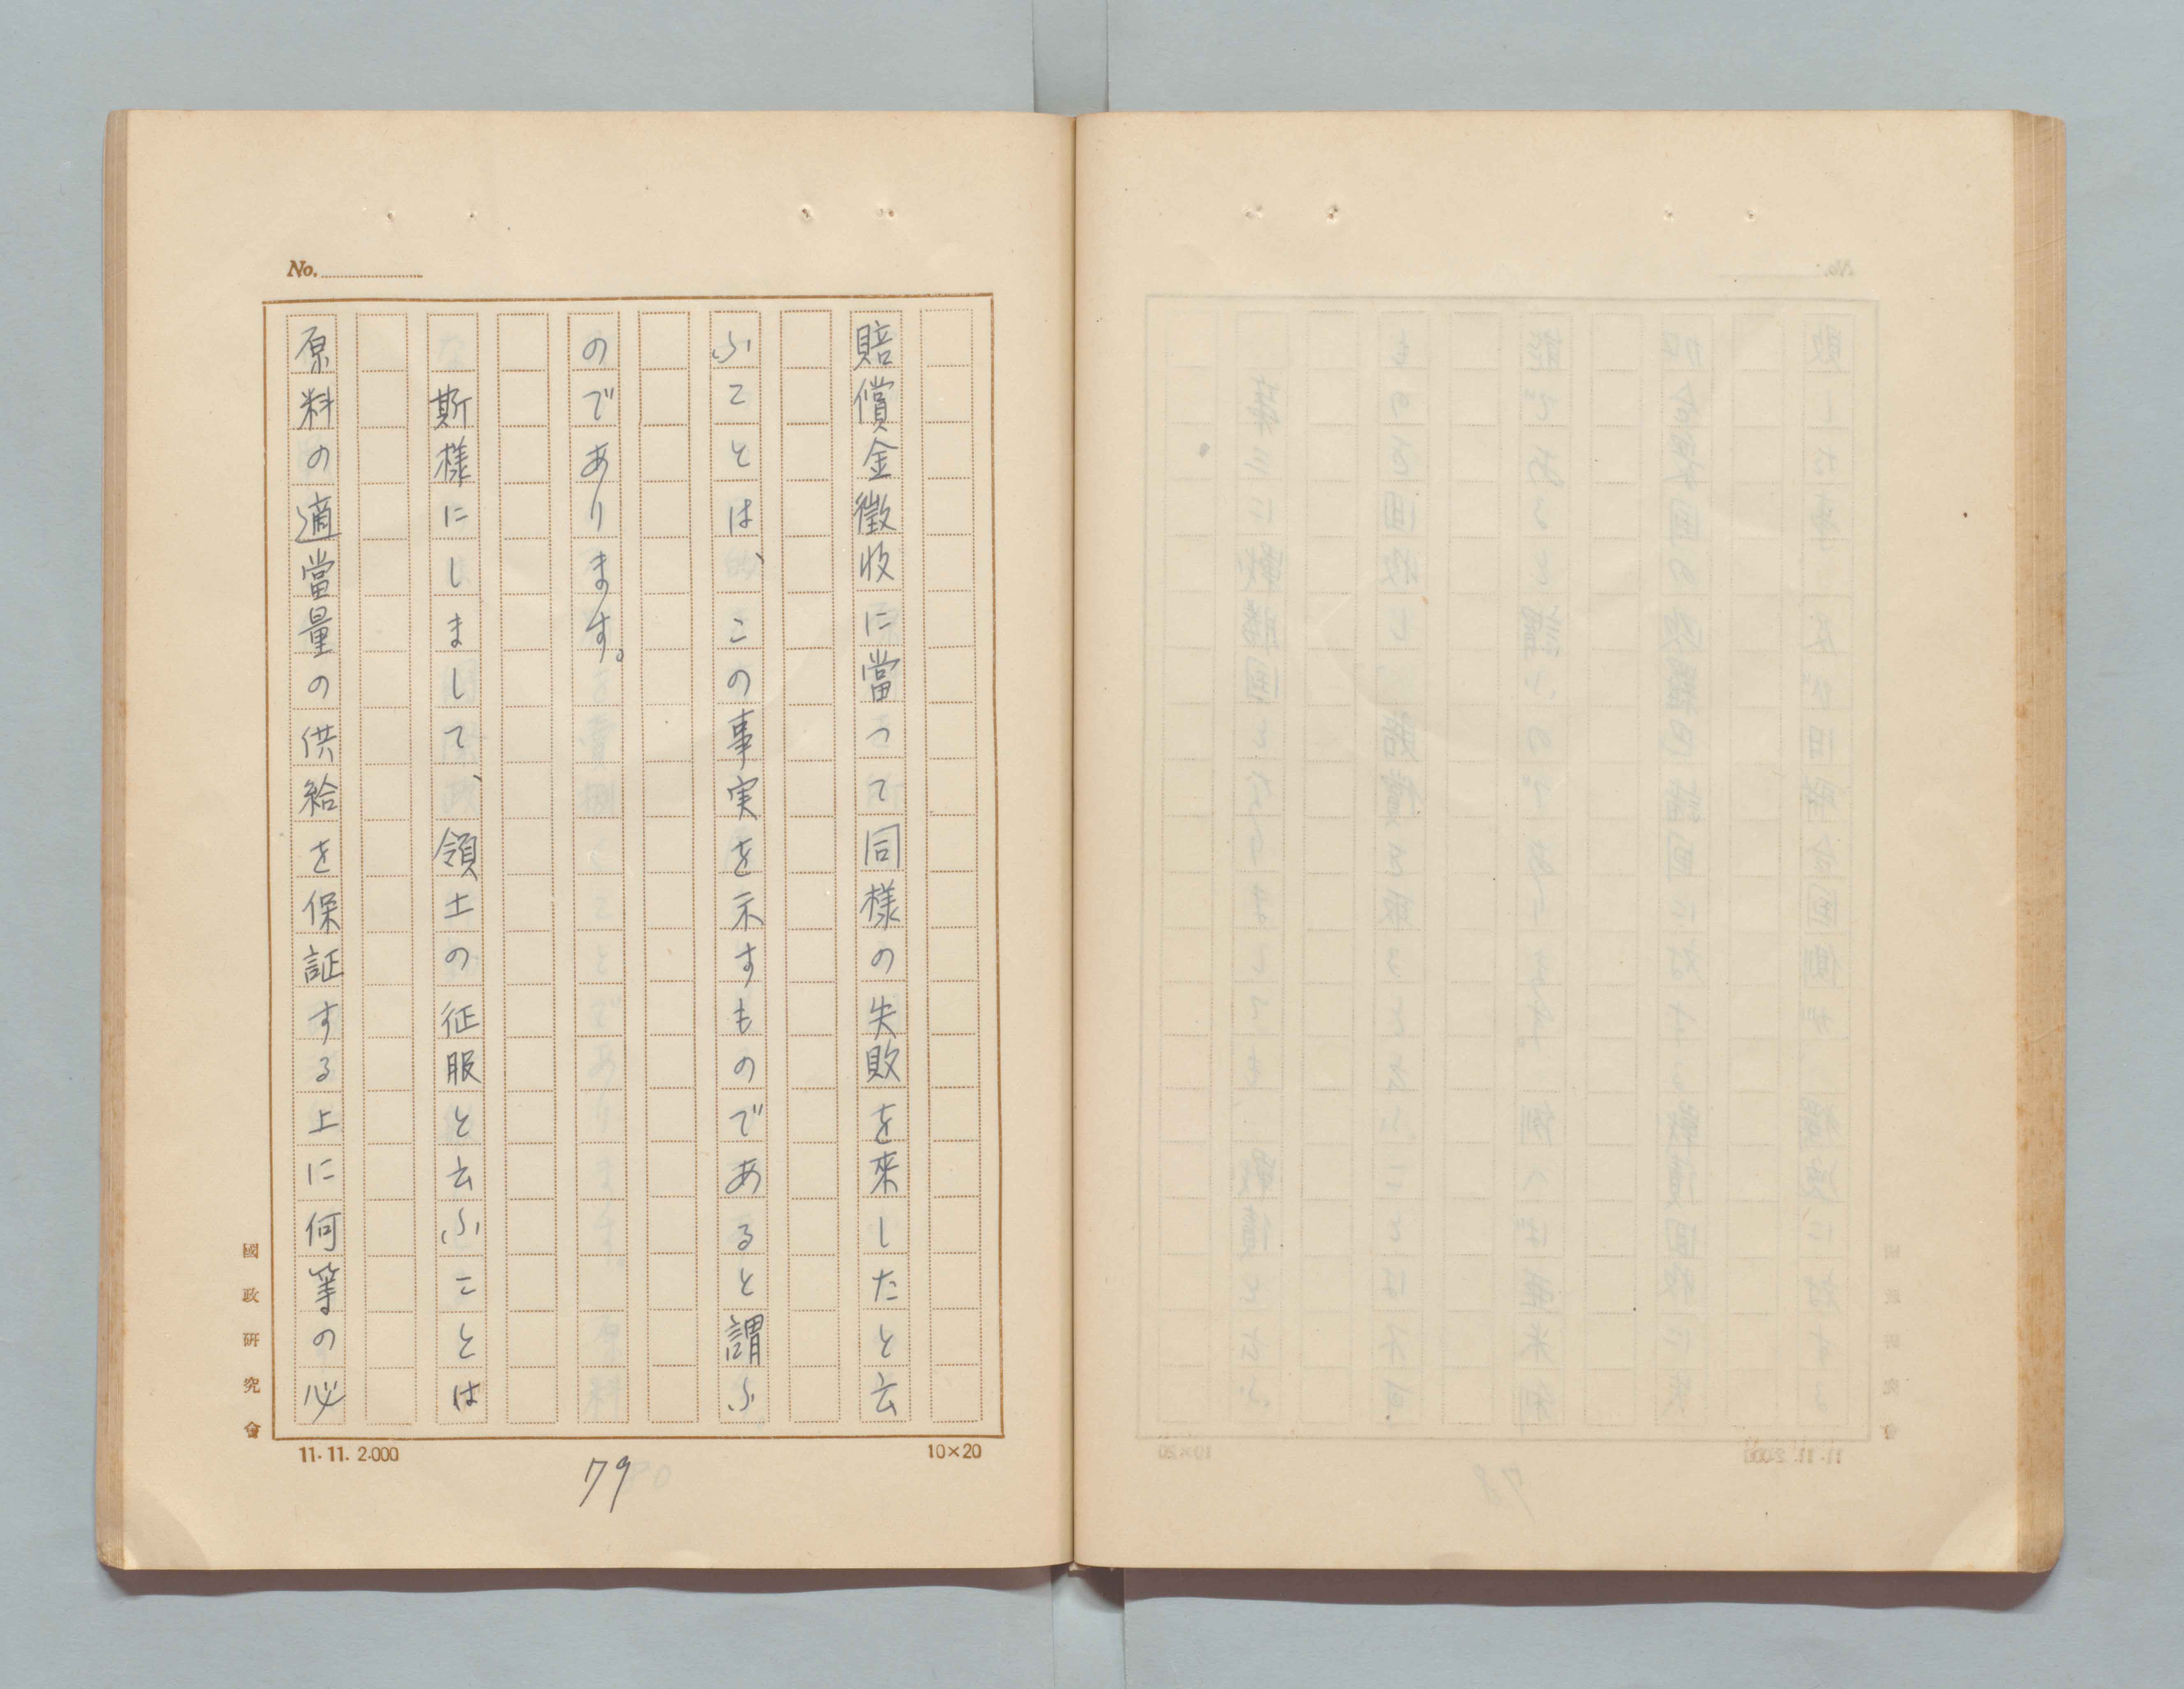 No.
賠償金徴收に當つて同様の失敗を來したと云
ふことは、この事実を示すものであると謂ふ
のであります。
斯様にしまして、領土の征服と云ふことは
原料の適當量の供給を保証する上に何等の必
國政研究會
11.11.2.000
10×20
79